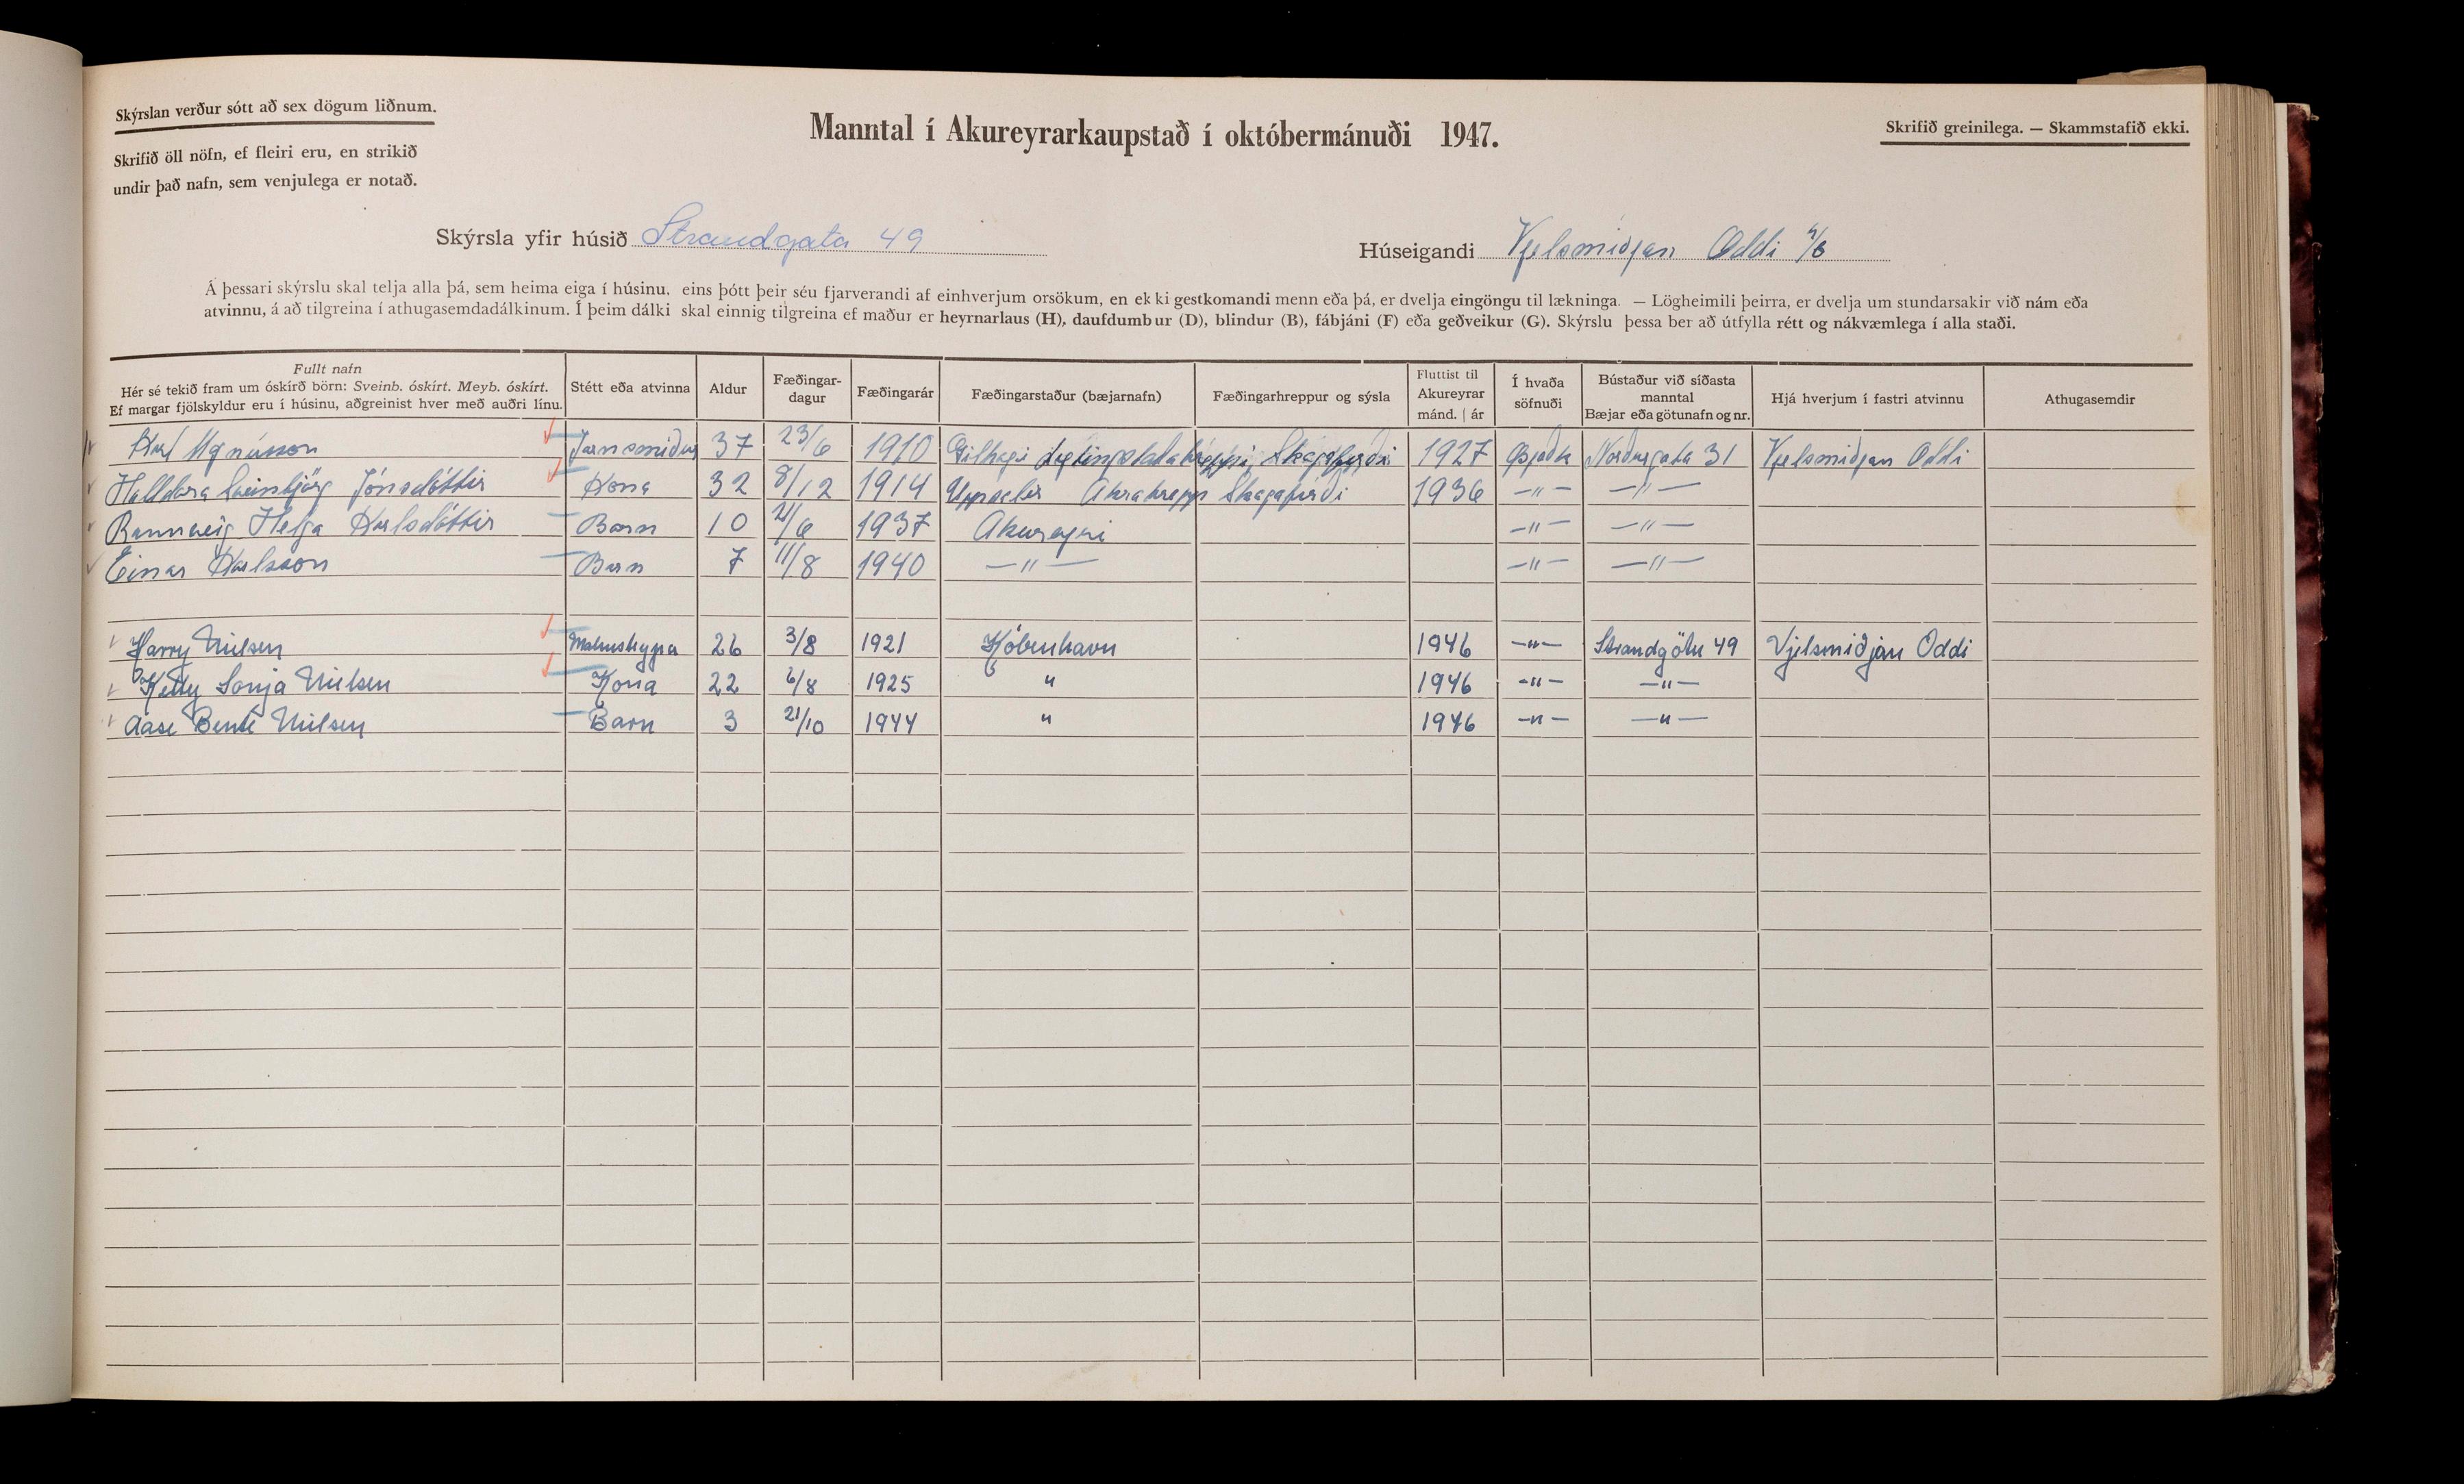 Skýrslan verður sótt að sex dögum liðnum.
Skrifið öll nöfn, ef fleiri eru, en strikið
undir það nafn, sem venjulega er notað.
Manntal í Akureyrarkaupstað í októbermánuði 1947.
Skrifið greinilega. — Skammstafið ekki.
Skýrsla yfir húsið Strandgata 49
Húseigandi Vjelsmiðjan Oddi h/f
Á þessari skýrslu skal telja alla þá, sem heima eiga í húsinu, eins þótt þeir séu fjarverandi af einhverjum orsökum, en ekki gestkomandi menn eða þá, er dvelja eingöngu til lækninga. — Lögheimili þeirra, er dvelja um stundarsakir við nám eða
atvinnu, á að tilgreina í athugasemdadálkinum. Í þeim dálki skal einnig tilgreina ef maður er heyrnarlaus (H), daufdumbur (D), blindur (B), fábjáni (F) eða geðveikur (G). Skýrslu þessa ber að útfylla rétt og nákvæmlega í alla staði.
Fullt nafn
Hér sé tekið fram um óskírð börn: Sveinb. óskírt. Meyb. óskírt.
Ef margar fjölskyldur eru í húsinu, aðgreinist hver með auðri línu.
Stétt eða atvinna
Aldur
Fæðingar-
dagur
Fæðingarár
Fæðingarstaður (bæjarnafn)
Fæðingarhreppur og sýsla
Fluttist til
Akureyrar
mánd. | ár
Í hvaða
söfnuði
Bústaður við síðasta
manntal
Bæjar eða götunafn og nr.
Hjá hverjum í fastri atvinnu
Athugasemdir
Karl Magnússon Járnsmiður 37 23/6 1910 Gilhagi Skagafirði 1927 Norðurgata 31 Vjelsmiðjan Oddi
Halldóra Sveinbjörg Jónsdóttir Kona 32 8/12 1914 Akrahrepp Skagafirði 1936 —〃— —〃—
Rannveig Helga Karlsdóttir Barn 10 1937 Akureyri —〃— —〃—
Einar Karlsson Barn 7 11/8 1940 —〃— —〃— —〃—
Harry Nielsen 26 3/8 1921 Köbenhavn 1946 —〃— Strandgötu 49 Vjelsmiðjan Oddi
Ketty Sonja Nielsen Kona 22 6/8 1925 〃 1946 —〃— —〃—
Aase Bente Nielsen Barn 3 21/10 1944 〃 1946 —〃— —〃—